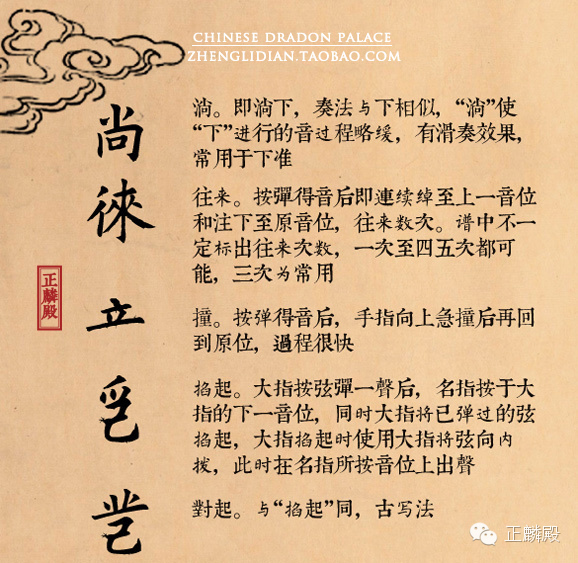 CHINESE DRADON PALACE
ZHENGLIDIAN.TAOBAO.COM
尚
淌。即淌下，奏法与下相似，“淌”使
“下”进行的音过程略缓，有滑奏效果，
常用于下准
徠
往来。按彈得音后即連续绰至上一音位
和注下至原音位，往来数次。谱中不一
定标出往来次数，一次至四五次都可
能，三次为常用
立
撞。按弹得音后，手指向上急撞后再回
到原位，過程很快
掐起。大指按弦彈一聲后，名指按于大
指的下一音位，同时大指将已弹过的弦
掐起，大指掐起时使用大指将弦向内
拨，此时在名指所按音位上出聲
對起。与“掐起”同，古写法
正麟殿
正麟殿